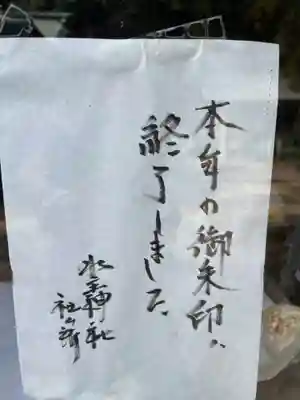 本年の御朱印は
終了しました
水主神社
社務所